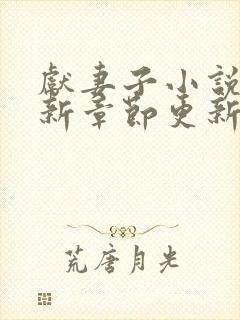 獻妻子小說
新章節更新
荒唐月光